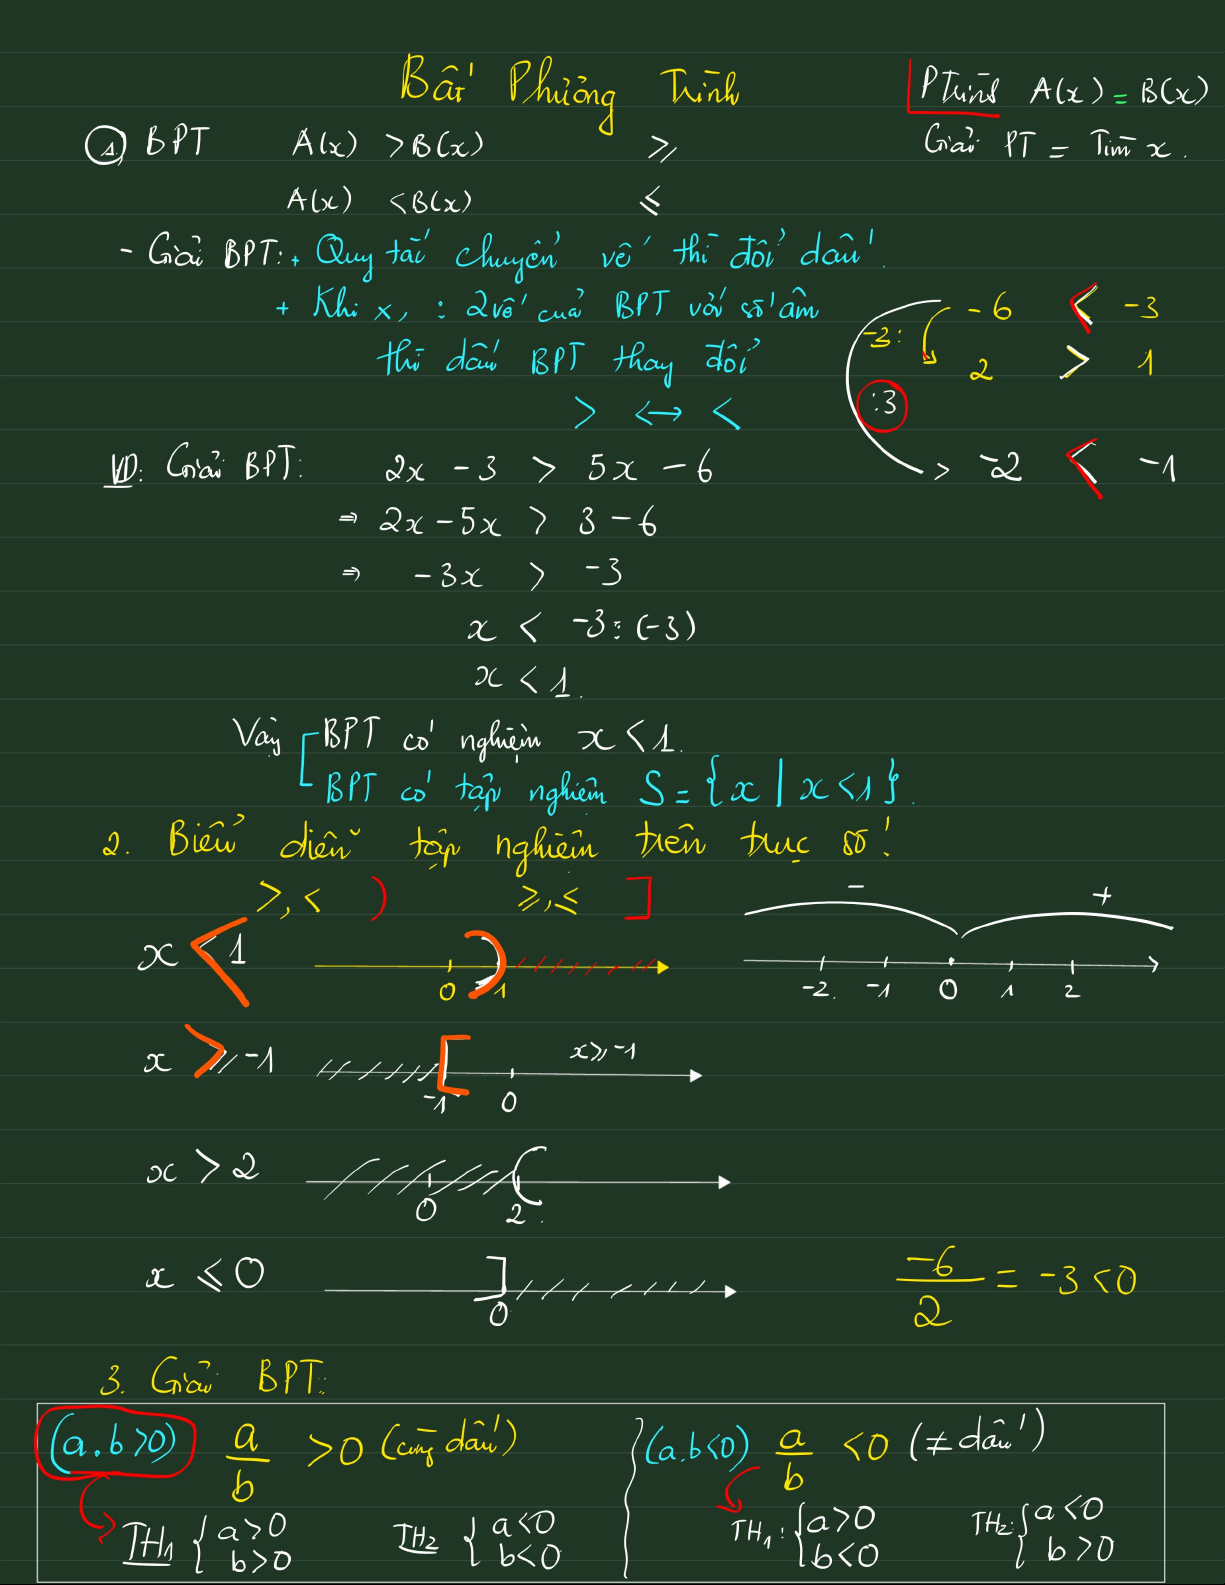 Bất Phương Trình
Ptrình A(x) = B(x)
Giải PT = Tìm x.
① BPT A(x) > B(x) ≥
A(x) < B(x) ≤
- Giải BPT: + Quy tắc chuyển vế thì đổi dấu.
+ Khi x, : 2 vế của BPT với số âm
thì dấu BPT thay đổi
> ↔ <
-6 < -3
-3:
2 > 1
:3
-2 < -1
VD: Giải BPT: 2x - 3 > 5x - 6
⇒ 2x - 5x > 3 - 6
⇒ -3x > -3
x < -3 : (-3)
x < 1.
Vậy BPT có nghiệm x < 1.
BPT có tập nghiệm S = {x | x < 1}.
2. Biểu diễn tập nghiệm trên trục số:
>, < ) ≥, ≤ ]
- +
-2 -1 0 1 2
x < 1 0 1
x ≥ -1 -1 0 x ≥ -1
x > 2 0 2
x ≤ 0 0
-6/2 = -3 < 0
3. Giải BPT:
(a.b > 0) a/b > 0 (cùng dấu)
TH1 { a > 0 b > 0 TH2 { a < 0 b < 0
(a.b < 0) a/b < 0 (≠ dấu)
TH1: { a > 0 b < 0 TH2: { a < 0 b > 0